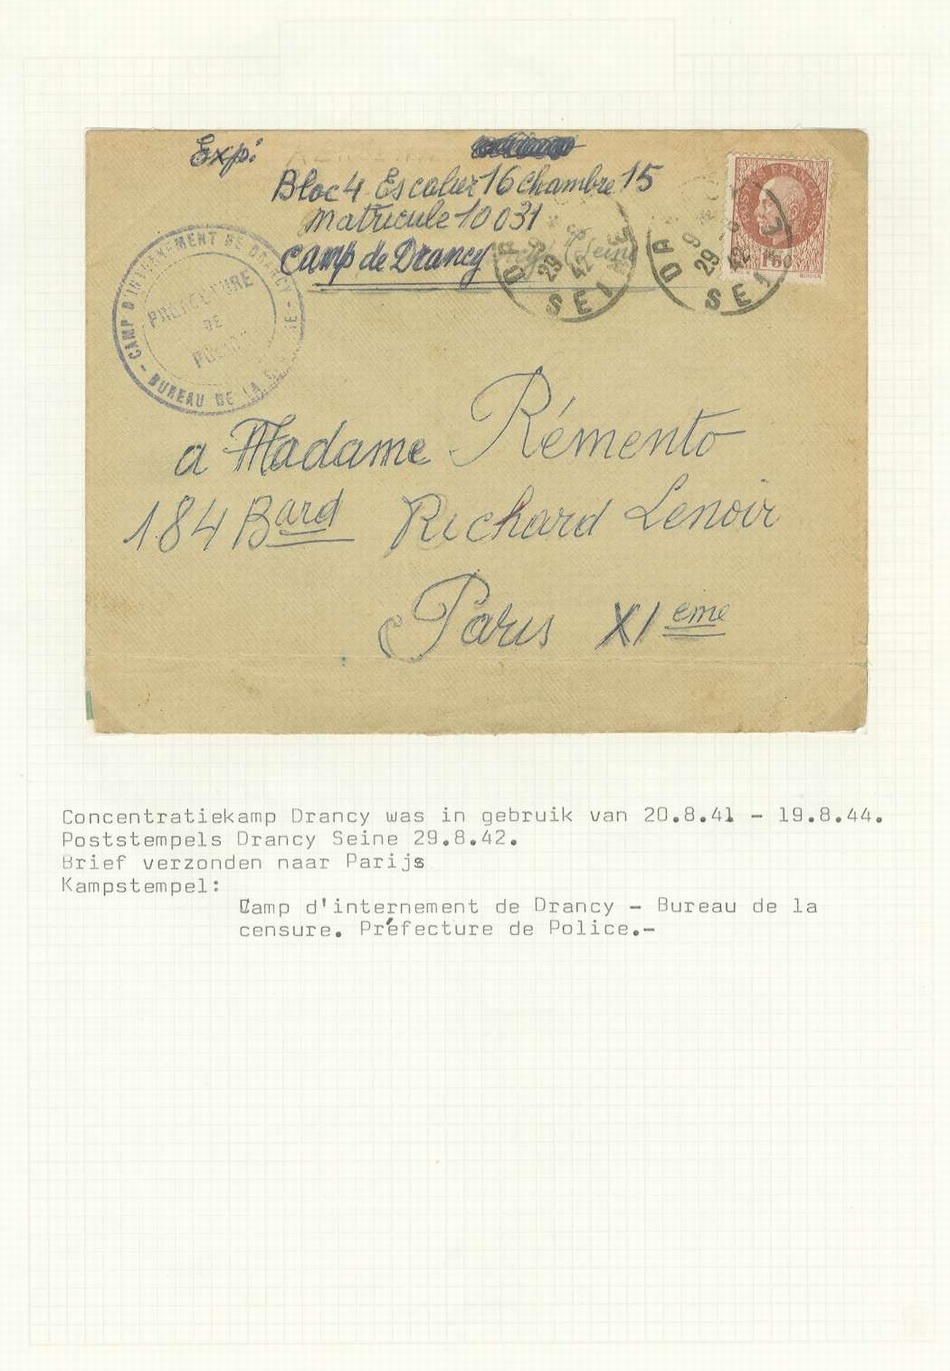 Exp:
Bloc 4 Escalier 16 chambre 15
Matricule 10031
Camp de Drancy (Seine)
CAMP D'INTERNEMENT DE DRANCY - BUREAU DE LA
PREFECTURE
DE
1F50
29 - 8
42
SEINE
29
42
SEINE
a Madame Rémento
184 Bard Richard Lenoir
Paris XIeme
Concentratiekamp Drancy was in gebruik van 20.8.41 - 19.8.44.
Poststempels Drancy Seine 29.8.42.
Brief verzonden naar Parijs
Kampstempel:
Camp d'internement de Drancy - Bureau de la
censure. Préfecture de Police.-